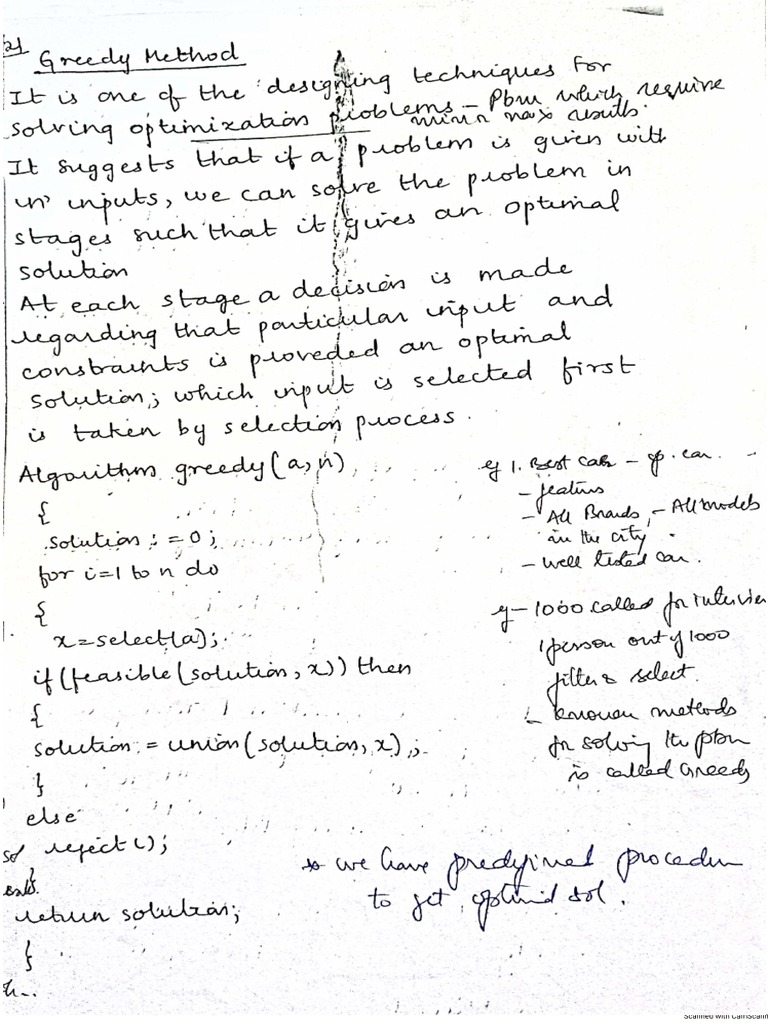 21
Greedy Method
It is one of the designing techniques for
solving optimization problems – Pbm which require
min n max results.
It suggests that if a problem is given with
'n' inputs, we can solve the problem in
stages such that it gives an optimal
solution
At each stage a decision is made
regarding that particular input and
constraints is proveded an optimal
solution; which input is selected first
is taken by selection process.
Algorithm greedy(a,n)
{
solution := 0;
for i=1 to n do
{
x=select(a);
if (feasible(solution, x)) then
{
solution = union(solution, x);
}
else
reject();
}
return solution;
}
eg 1. Best car – car.
– features
– All Brands, – All models
in the city
– well tested car.
eg – 1000 called for interview
1 person out of 1000
filter & select.
– known methods
for solving the pbm
is called Greedy
so we have predefined procedure
to get optimal sol.
Scanned with CamScann